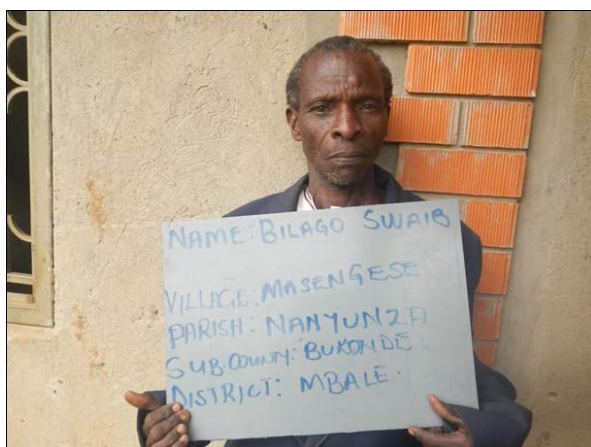 NAME: BILAGO SWAIB
VILLAGE: MASENGESE
PARISH: NANYUNZA
SUBCOUNTY: BUKONDE.
DISTRICT: MBALE.